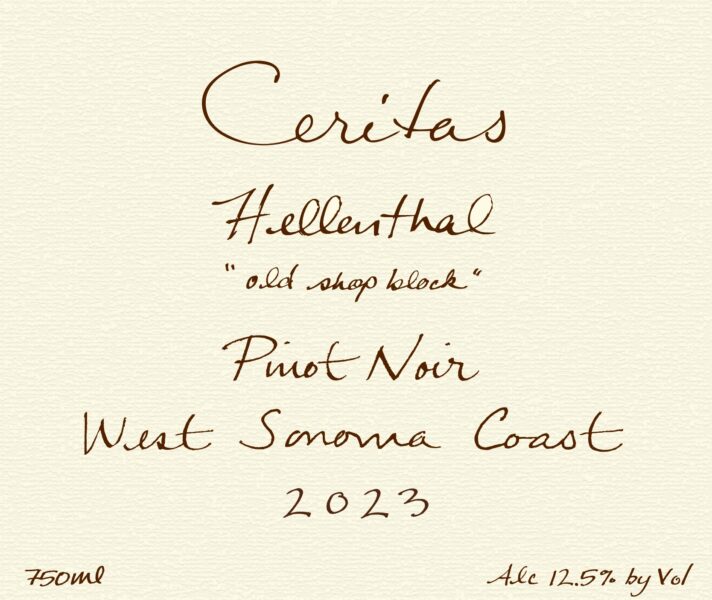 Ceritas
Hellenthal
"old shop block"
Pinot Noir
West Sonoma Coast
2023
750ml
Alc 12.5% by Vol